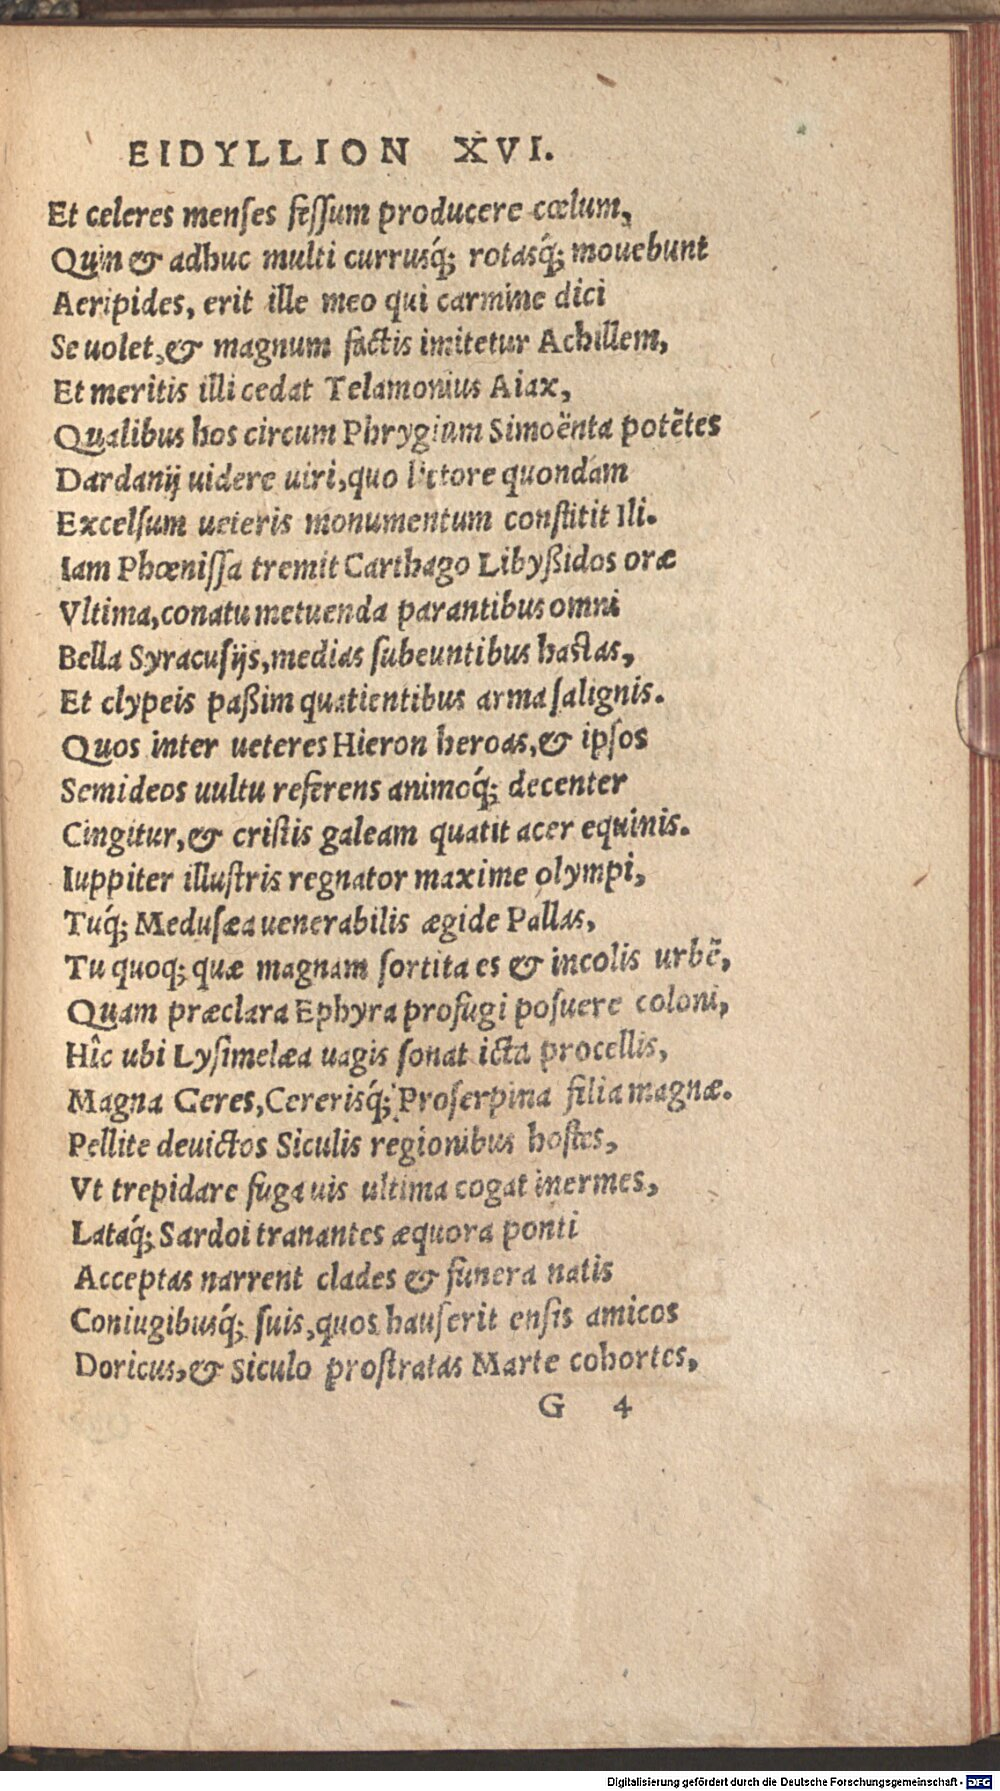 EIDYLLION XVI.
Et celeres menſes feſſum producere cœlum,
Quin & adhuc multi currusq́; rotasq́; mouebunt
Aeripides, erit ille meo qui carmine dici
Se uolet, & magnum factis imitetur Achillem,
Et meritis illi cedat Telamonius Aiax,
Qualibus hos circum Phrygium Simoënta potẽtes
Dardanij uidere uiri, quo littore quondam
Excelſum ueteris monumentum conſtitit Ili.
Iam Phœniſſa tremit Carthago Libyßidos oræ
Vltima, conatu metuenda parantibus omni
Bella Syracuſijs, medias ſubeuntibus haſtas,
Et clypeis paßim quatientibus arma ſalignis.
Quos inter ueteres Hieron heroas, & ipſos
Semideos uultu referens animoq́; decenter
Cingitur, & criſtis galeam quatit acer equinis.
Iuppiter illuſtris regnator maxime olympi,
Tuq́; Meduſæa uenerabilis ægide Pallas,
Tu quoq; quæ magnam ſortita es & incolis urbẽ,
Quam præclara Ephyra profugi poſuere coloni,
Hîc ubi Lyſimelæa uagis ſonat icta procellis,
Magna Ceres, Cererisq́; Proſerpina filia magnæ.
Pellite deuictos Siculis regionibus hoſtes,
Vt trepidare fuga uis ultima cogat inermes,
Lataq́; Sardoi tranantes æquora ponti
Acceptas narrent clades & funera natis
Coniugibusq́; ſuis, quos hauſerit enſis amicos
Doricus, & Siculo proſtratas Marte cohortes,
G 4
Digitalisierung gefördert durch die Deutsche Forschungsgemeinschaft - DFG